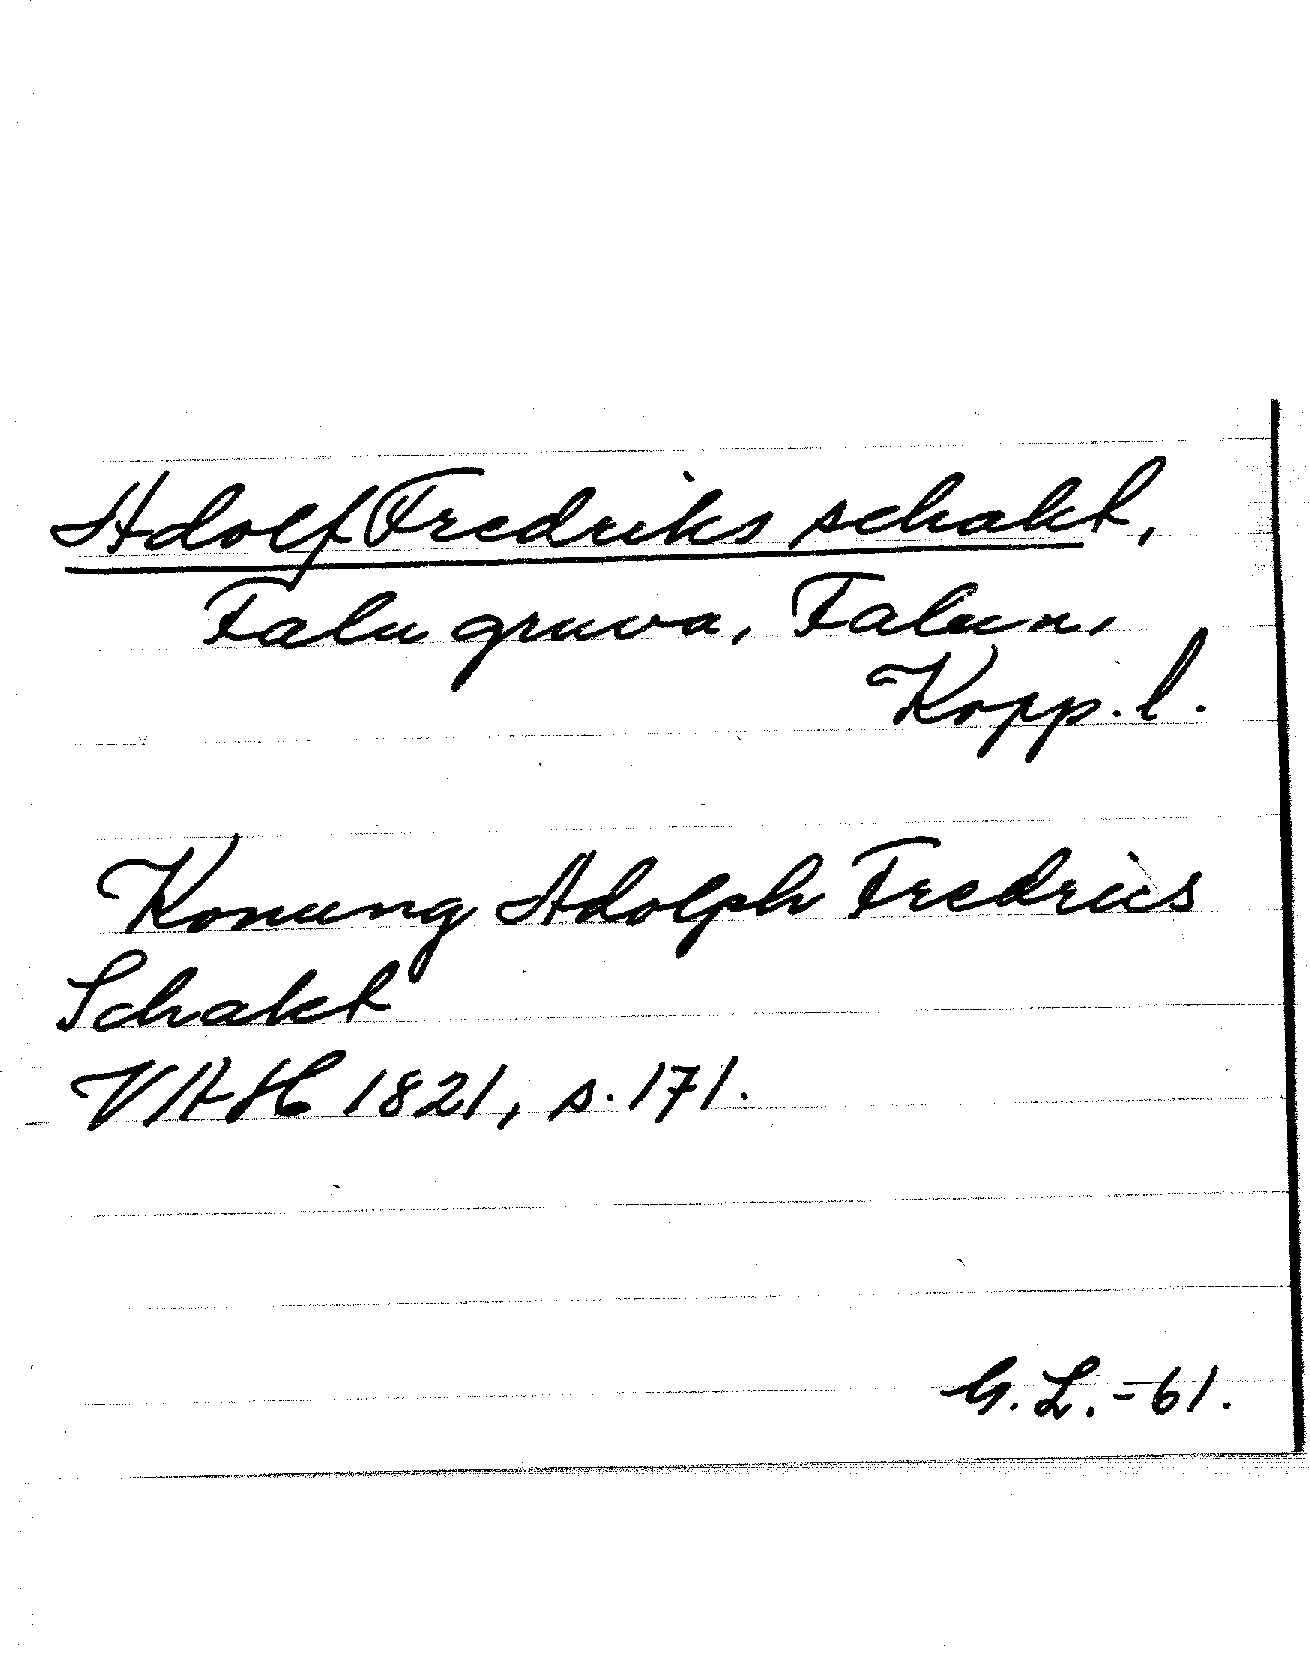 Adolf Fredriks schakt,
Falu gruva, Falun,
Kopp. l.
Konung Adolph Fredrics
Schakt
VAH 1821, s. 171.
G. L. -61.